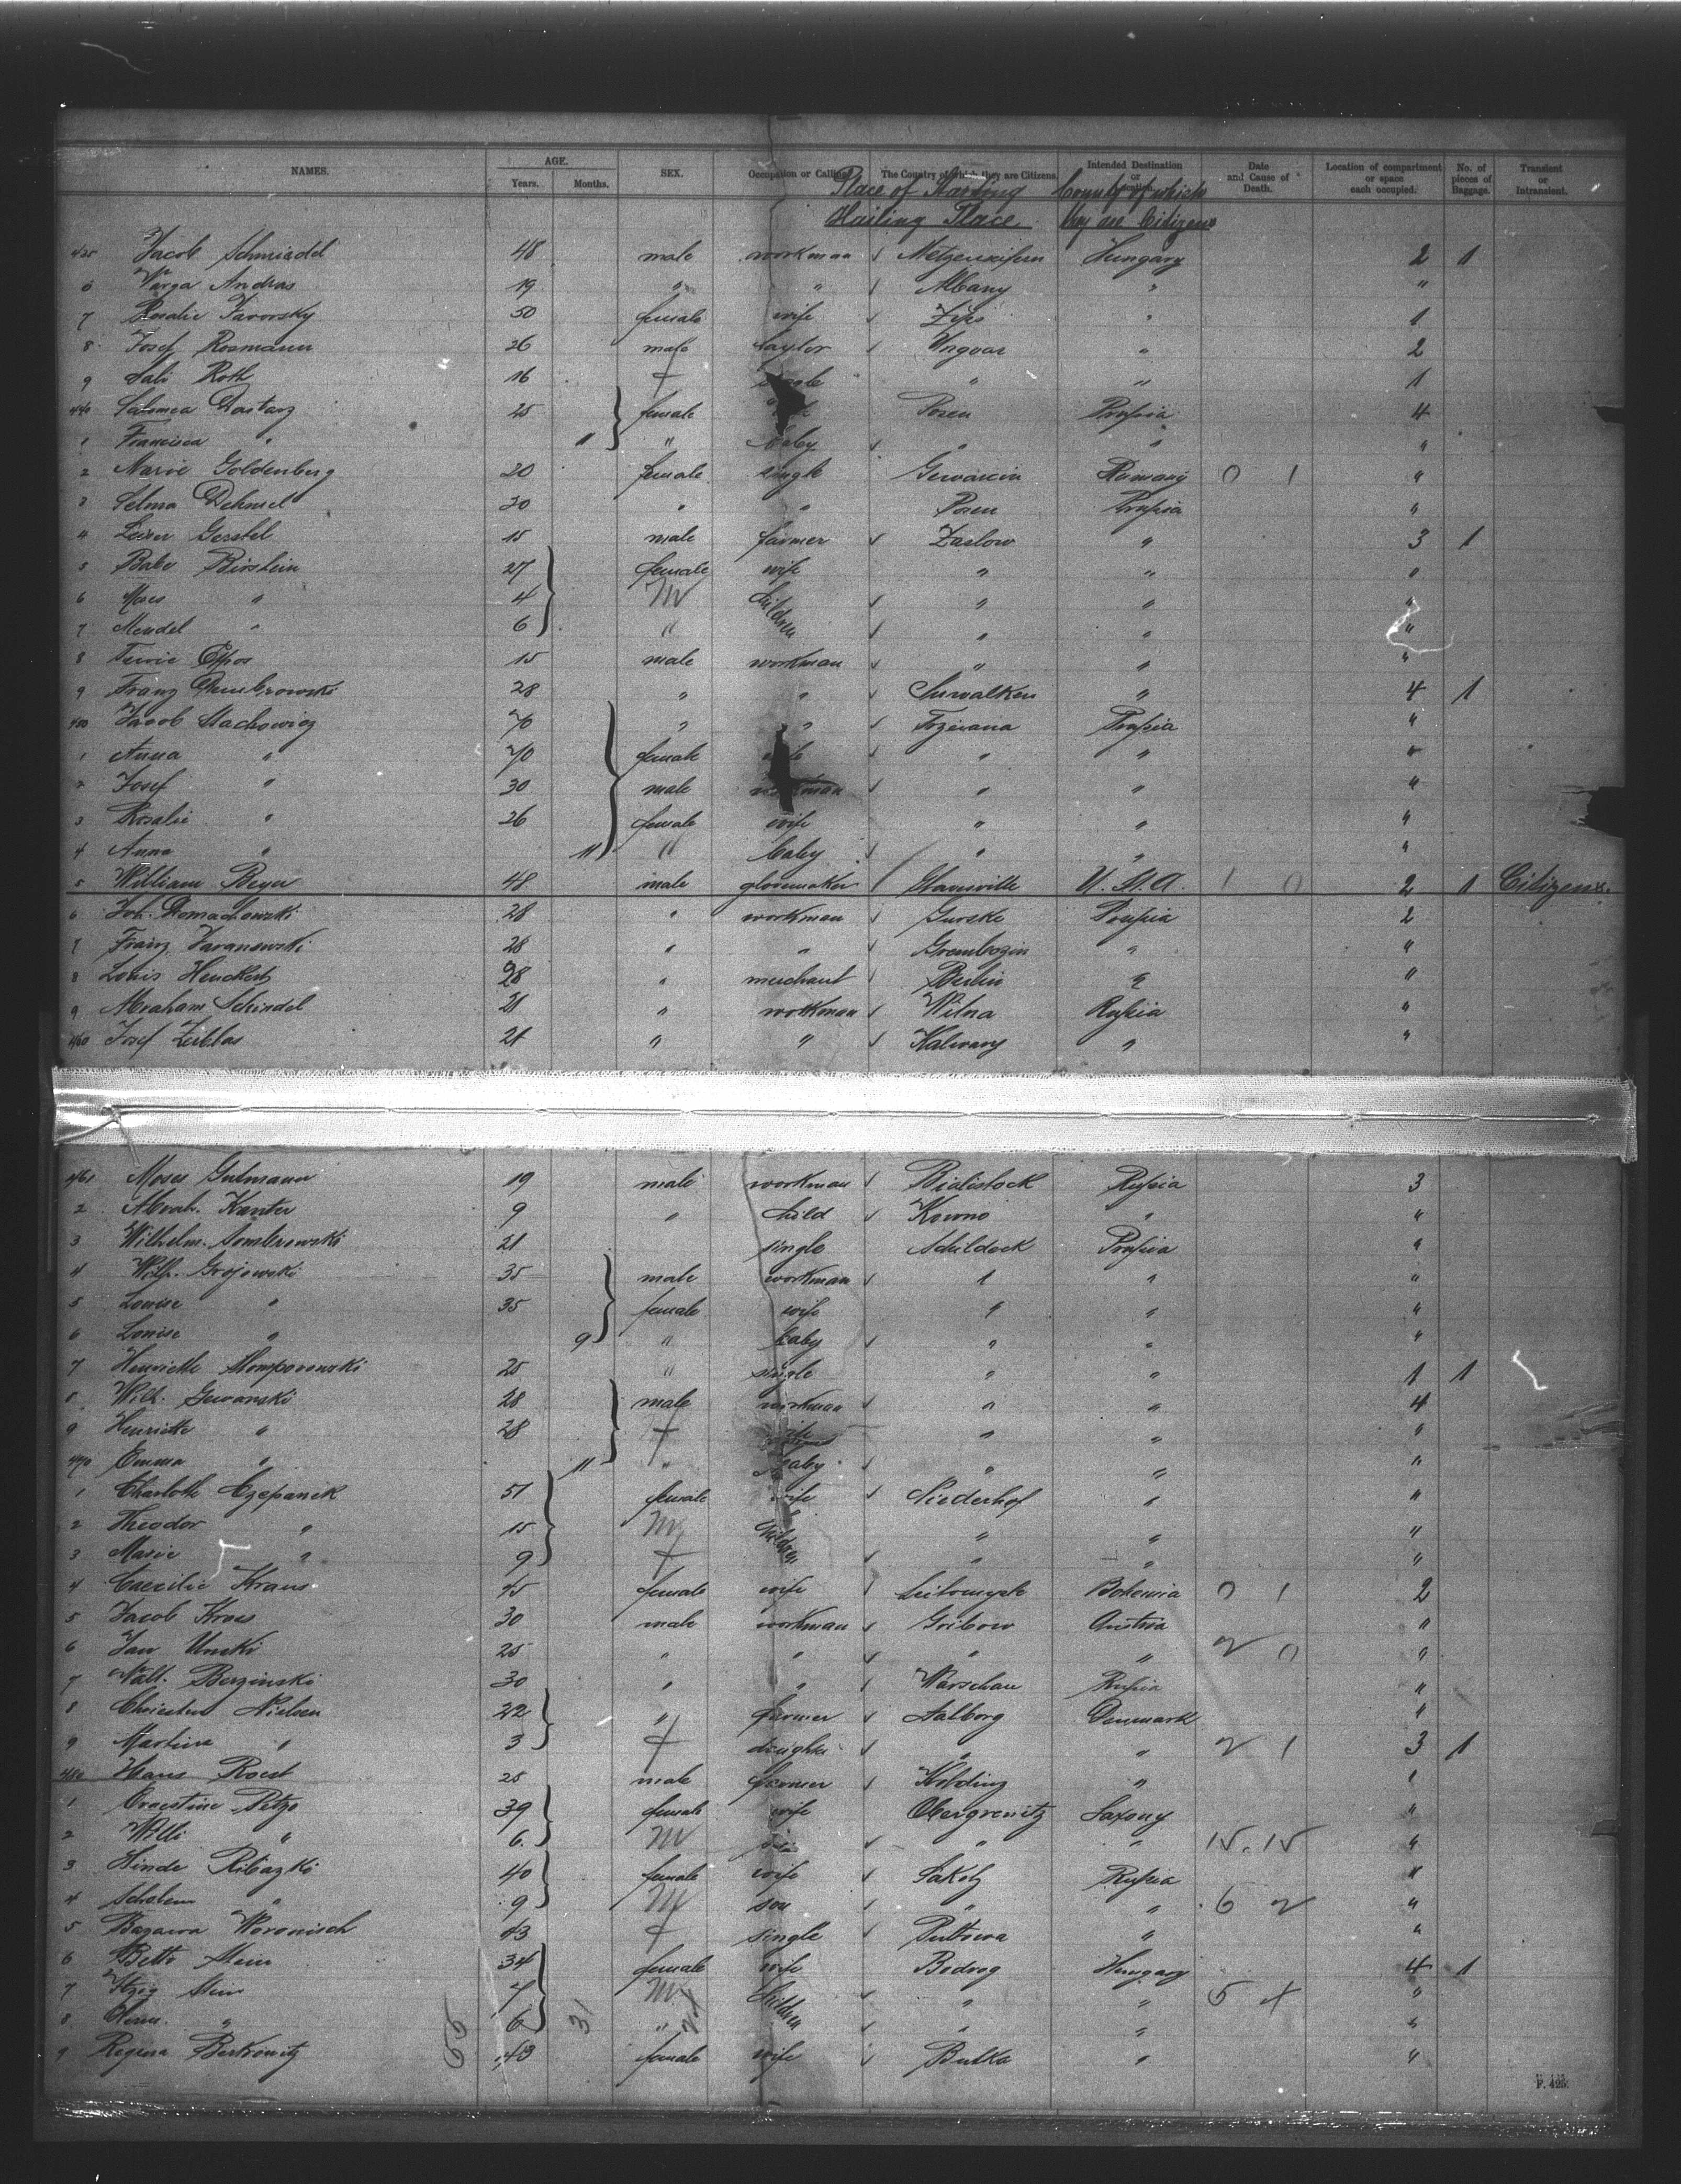 NAMES. AGE. Years. Months. SEX. Occupation or Calling. The Country of which they are Citizens. Intended Destination or Location. Date and Cause of Death. Location of compartment or space each occupied. No. of pieces of Baggage. Transient or Intransient.
Place of Starting County of which
Hailing Place. they are Citizens
435 Jacob Schmiedel 48 male workman Hungary 2 1
6 Varga Andras 19 " " Albany " "
7 Rosalie Javorsky 50 female wife Zips " 1
8 Josef Rosmann 26 male taylor Ungvar " 2
9 Sali Roth 16 f single " " 1
440 25 female Posen Prussia 4
1 Francisca " 11 " baby " " "
2 Marie Goldenberg 20 female single 0 1 "
3 Selma Dehmel 20 " " Prussia "
4 Gerstel 15 male farmer Zaslow " 3 1
5 Babe Birstein 27 female wife " " "
6 Moses " 4 M children " " "
7 Mendel " 6 " " " "
8 15 male workman " " "
9 Franz Dembrowski 28 " " Suwalken " 4 1
450 Jacob Stachowicz 70 " " Prussia "
1 Anna " 70 female wife " " "
2 Josef " 30 male workman " " "
3 Rosalie " 26 female wife " " "
4 Anna " 11 " baby " " "
5 William Beyer 48 male glovemaker U. S. A. 1 0 2 1 Citizen
6 Joh. Domachowski 28 " workman Gurske Prussia 2
7 Franz 28 " " Grembozin " "
8 Louis 28 " merchant Berlin " "
9 Abraham Schindel 21 " workman Wilna Russia "
460 Josef 21 " " Kalwary " "
461 Moses Gutmann 19 male workman Bialistock Russia 3
2 Abrah. Kanter 9 " child Kowno " "
3 Wilhelm. Dombrowski 21 single Schildeck Prussia "
4 Wilh. Grojowski 35 male workman " " "
5 Louise " 35 female wife " " "
6 Louise " 9 " baby " " "
7 Henriette 25 " single " " 1 1
8 Wilh. Guvanski 28 male workman " " 4
9 Henriette " 28 f wife " " "
470 Emma " 11 " baby " " "
1 Charlotte Czepanik 51 female wife Niederhof " "
2 Theodor " 15 M children " " "
3 Marie " 9 f " " "
4 Caecilie Kraus 45 female wife Leitomysle Bohemia 0 1 2
5 Jacob Kroes 30 male workman Gribow Austria "
6 Jan 25 " " " " 2 0 "
7 Berzinski 30 " " Warschau Russia "
8 Nielsen 22 " farmer Aalborg Denmark "
9 Martine " 3 f daughter " " 2 1 3 1
480 Hans Roest 25 male farmer Kolding " "
1 Ernestine Petzo 39 female wife Obergrenitz Saxony "
2 Willi " 6 M son " " 15. 15 "
3 Hinde Ribazki 40 female wife Russia "
4 Scholem " 9 M son " " 6 2 "
5 Woronisch 43 f single Pultowa " "
6 Betti Stein 34 female wife Bodrog Hungary 4 1
7 Itzig Stein 7 M children " " 5 4 "
8 Herm. " 6 " " " "
9 Regina Berkowitz 43 female wife Butka " "
55 31 24
F. 425.